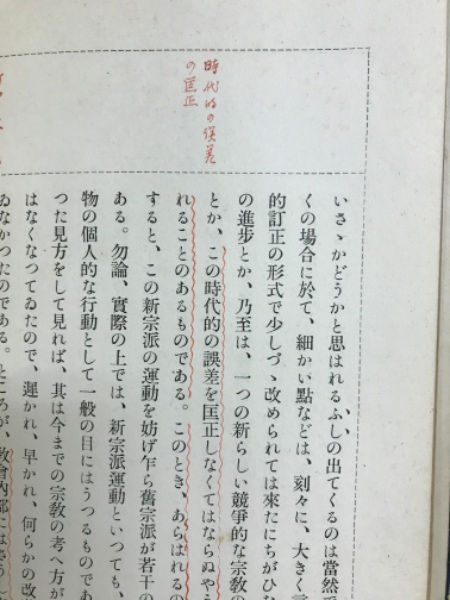 時代的の誤差
の匡正
いさゝかどうかと思はれるふしの出てくるのは當然
くの場合に於て、細かい點などは、刻々に、大きく
的訂正の形式で少しづゝ改められては來たにちがひな
の進步とか、乃至は、一つの新らしい競爭的な宗敎の
とか、この時代的の誤差を匡正しなくてはならぬやう
れることのあるものである。このとき、あらはれるの
すると、この新宗派の運動を妨げ乍ら舊宗派が若干の
ある。勿論、實際の上では、新宗派運動といつても、
物の個人的な行動として一般の目にはうつるものであ
つた見方をして見れば、其は今までの宗敎の考へ方が
はなくなつてゐたので、遲かれ、早かれ、何らかの改
ゐなかつたのである。ところが、敎會內部にはさうし